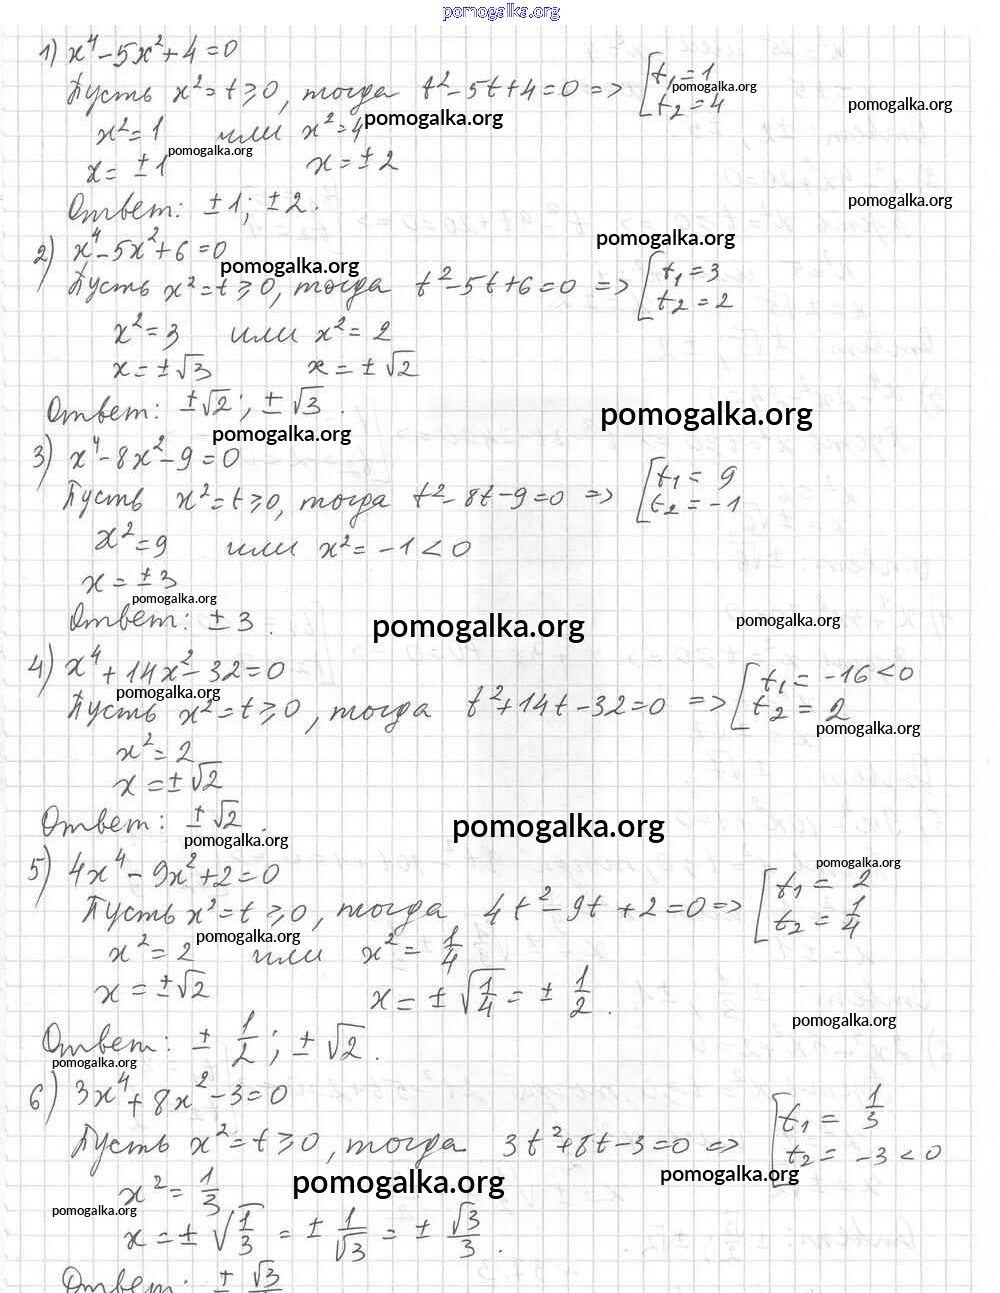 pomogalka.org
1) x⁴ - 5x² + 4 = 0
Пусть x² = t ≥ 0, тогда t² - 5t + 4 = 0 => [ t₁ = 1
t₂ = 4
pomogalka.org
pomogalka.org
x² = 1 или x² = 4 pomogalka.org
x = ± 1 x = ± 2
pomogalka.org
Ответ: ± 1; ± 2.
pomogalka.org
2) x⁴ - 5x² + 6 = 0
pomogalka.org
pomogalka.org
Пусть x² = t ≥ 0, тогда t² - 5t + 6 = 0 => [ t₁ = 3
t₂ = 2
x² = 3 или x² = 2
x = ± √3 x = ± √2
Ответ: ± √2; ± √3.
pomogalka.org
pomogalka.org
3) x⁴ - 8x² - 9 = 0
Пусть x² = t ≥ 0, тогда t² - 8t - 9 = 0 => [ t₁ = 9
t₂ = -1
x² = 9 или x² = -1 < 0
x = ± 3
pomogalka.org
Ответ: ± 3.
pomogalka.org
pomogalka.org
4) x⁴ + 14x² - 32 = 0
pomogalka.org
Пусть x² = t ≥ 0, тогда t² + 14t - 32 = 0 => [ t₁ = -16 < 0
t₂ = 2
pomogalka.org
x² = 2
x = ± √2
Ответ: ± √2.
pomogalka.org
pomogalka.org
5) 4x⁴ - 9x² + 2 = 0
pomogalka.org
Пусть x² = t ≥ 0, тогда 4t² - 9t + 2 = 0 => [ t₁ = 2
t₂ = 1/4
pomogalka.org
x² = 2 или x² = 1/4
x = ± √2 x = ± √(1/4) = ± 1/2.
pomogalka.org
Ответ: ± 1/2; ± √2.
pomogalka.org
6) 3x⁴ + 8x² - 3 = 0
Пусть x² = t ≥ 0, тогда 3t² + 8t - 3 = 0 => [ t₁ = 1/3
t₂ = -3 < 0
pomogalka.org
pomogalka.org
x² = 1/3
pomogalka.org
x = ± √(1/3) = ± 1/√3 = ± √3/3.
Ответ: ± √3